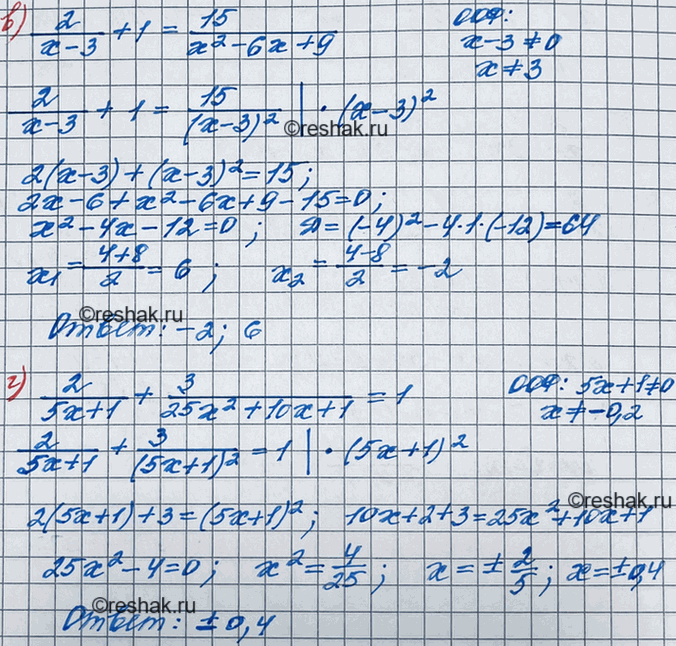 в) 2/(x-3) + 1 = 15/(x²-6x+9) ООФ:
x-3≠0
x≠3
2/(x-3) + 1 = 15/(x-3)² | · (x-3)²
©reshak.ru
2(x-3)+(x-3)²=15;
2x-6+x²-6x+9-15=0;
x²-4x-12=0; D=(-4)²-4·1·(-12)=64
x₁=(4+8)/2=6; x₂=(4-8)/2=-2
©reshak.ru
Ответ: -2; 6
г) 2/(5x+1) + 3/(25x²+10x+1) = 1 ООФ: 5x+1≠0
x≠-0,2
2/(5x+1) + 3/(5x+1)² = 1 | · (5x+1)²
©reshak.ru
2(5x+1)+3=(5x+1)²; 10x+2+3=25x²+10x+1
25x²-4=0; x²=4/25; x=±2/5; x=±0,4
©reshak.ru
Ответ: ±0,4